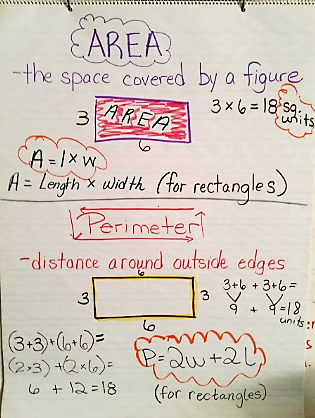 AREA
-the space covered by a figure
3 AREA 3 x 6 = 18 sq. units
6
A = l x w
A = Length x width (for rectangles)
Perimeter
-distance around outside edges
6
3 3 3+6 + 3+6 =
6 9 + 9 = 18 units
(3+3)+(6+6)=
(2x3)+(2x6)=
6 + 12 = 18
P=2w+2l
(for rectangles)